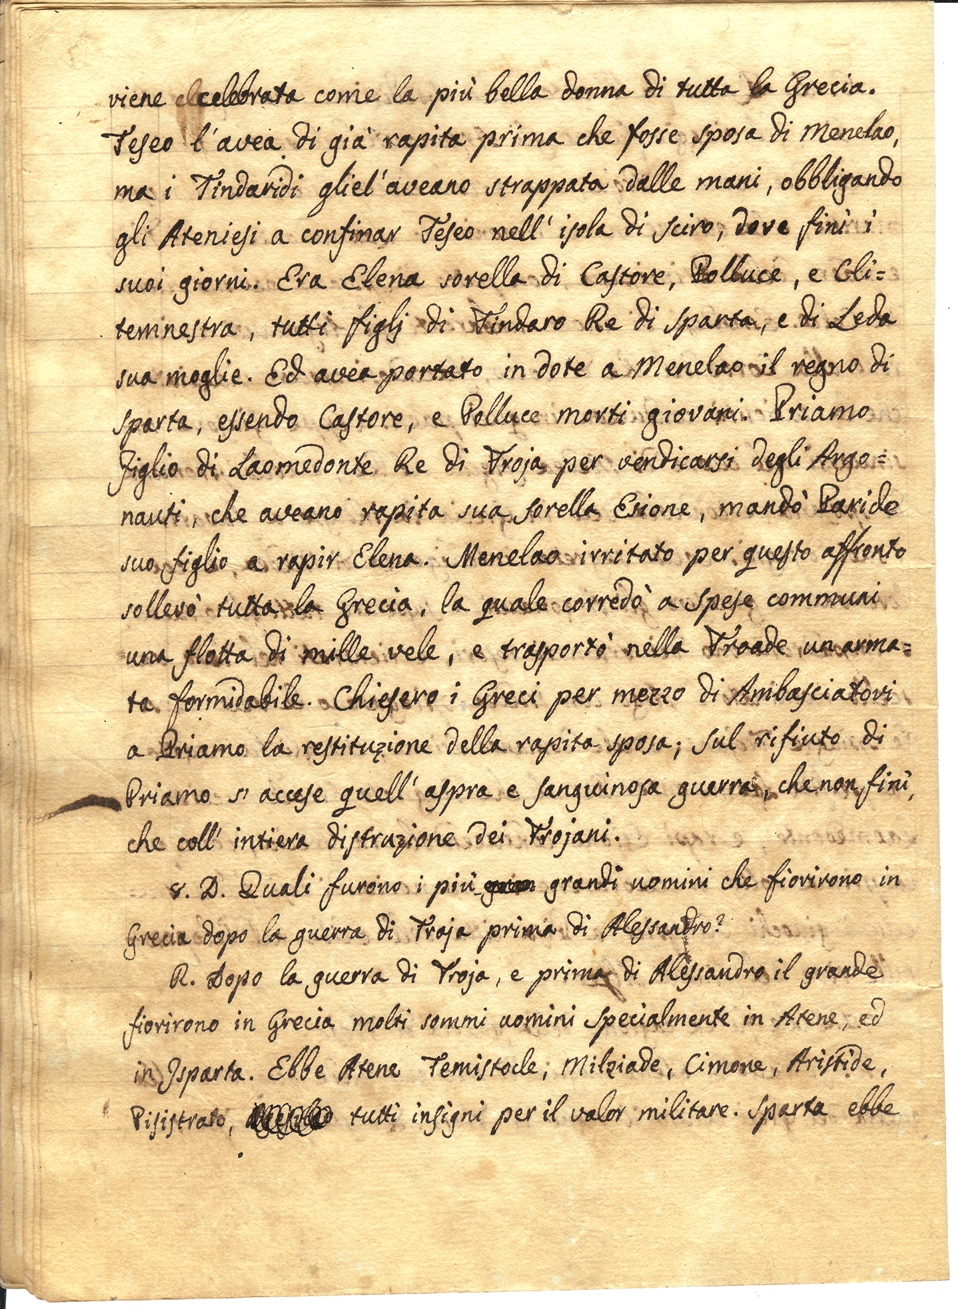 viene celebrata come la più bella donna di tutta la Grecia.
Teseo l'avea di già rapita prima che fosse sposa di Menelao,
ma i Tindaridi gliel'aveano strappata dalle mani, obbligando
gli Ateniesi a confinar Teseo nell'isola di Sciro, dove finì i
suoi giorni. Era Elena sorella di Castore, Polluce, e Cli=
temnestra, tutti figlj di Tindaro Re di Sparta, e di Leda
sua moglie. Ed avea portato in dote a Menelao il regno di
Sparta, essendo Castore, e Polluce morti giovani. Priamo
figlio di Laomedonte Re di Troja per vendicarsi degli Argo=
nauti, che aveano rapita sua sorella Esione, mandò Paride
suo figlio a rapir Elena. Menelao irritato per questo affronto
sollevò tutta la Grecia, la quale corredò a spese communi
una flotta di mille vele, e trasportò nella Troade un arma=
ta formidabile. Chiesero i Greci per mezzo di Ambasciatori
a Priamo la restituzione della rapita sposa; sul rifiuto di
Priamo s'accese quell'aspra e sanguinosa guerra, che non finì,
che coll'intiera distruzione dei Trojani.
8. D. Quali furono i più grandi uomini che fiorirono in
Grecia dopo la guerra di Troja prima di Alessandro?
R. Dopo la guerra di Troja, e prima di Alessandro il grande
fiorirono in Grecia molti sommi uomini specialmente in Atene, ed
in Isparta. Ebbe Atene Temistocle, Milziade, Cimone, Aristide,
Pisistrato, tutti insigni per il valor militare. Sparta ebbe